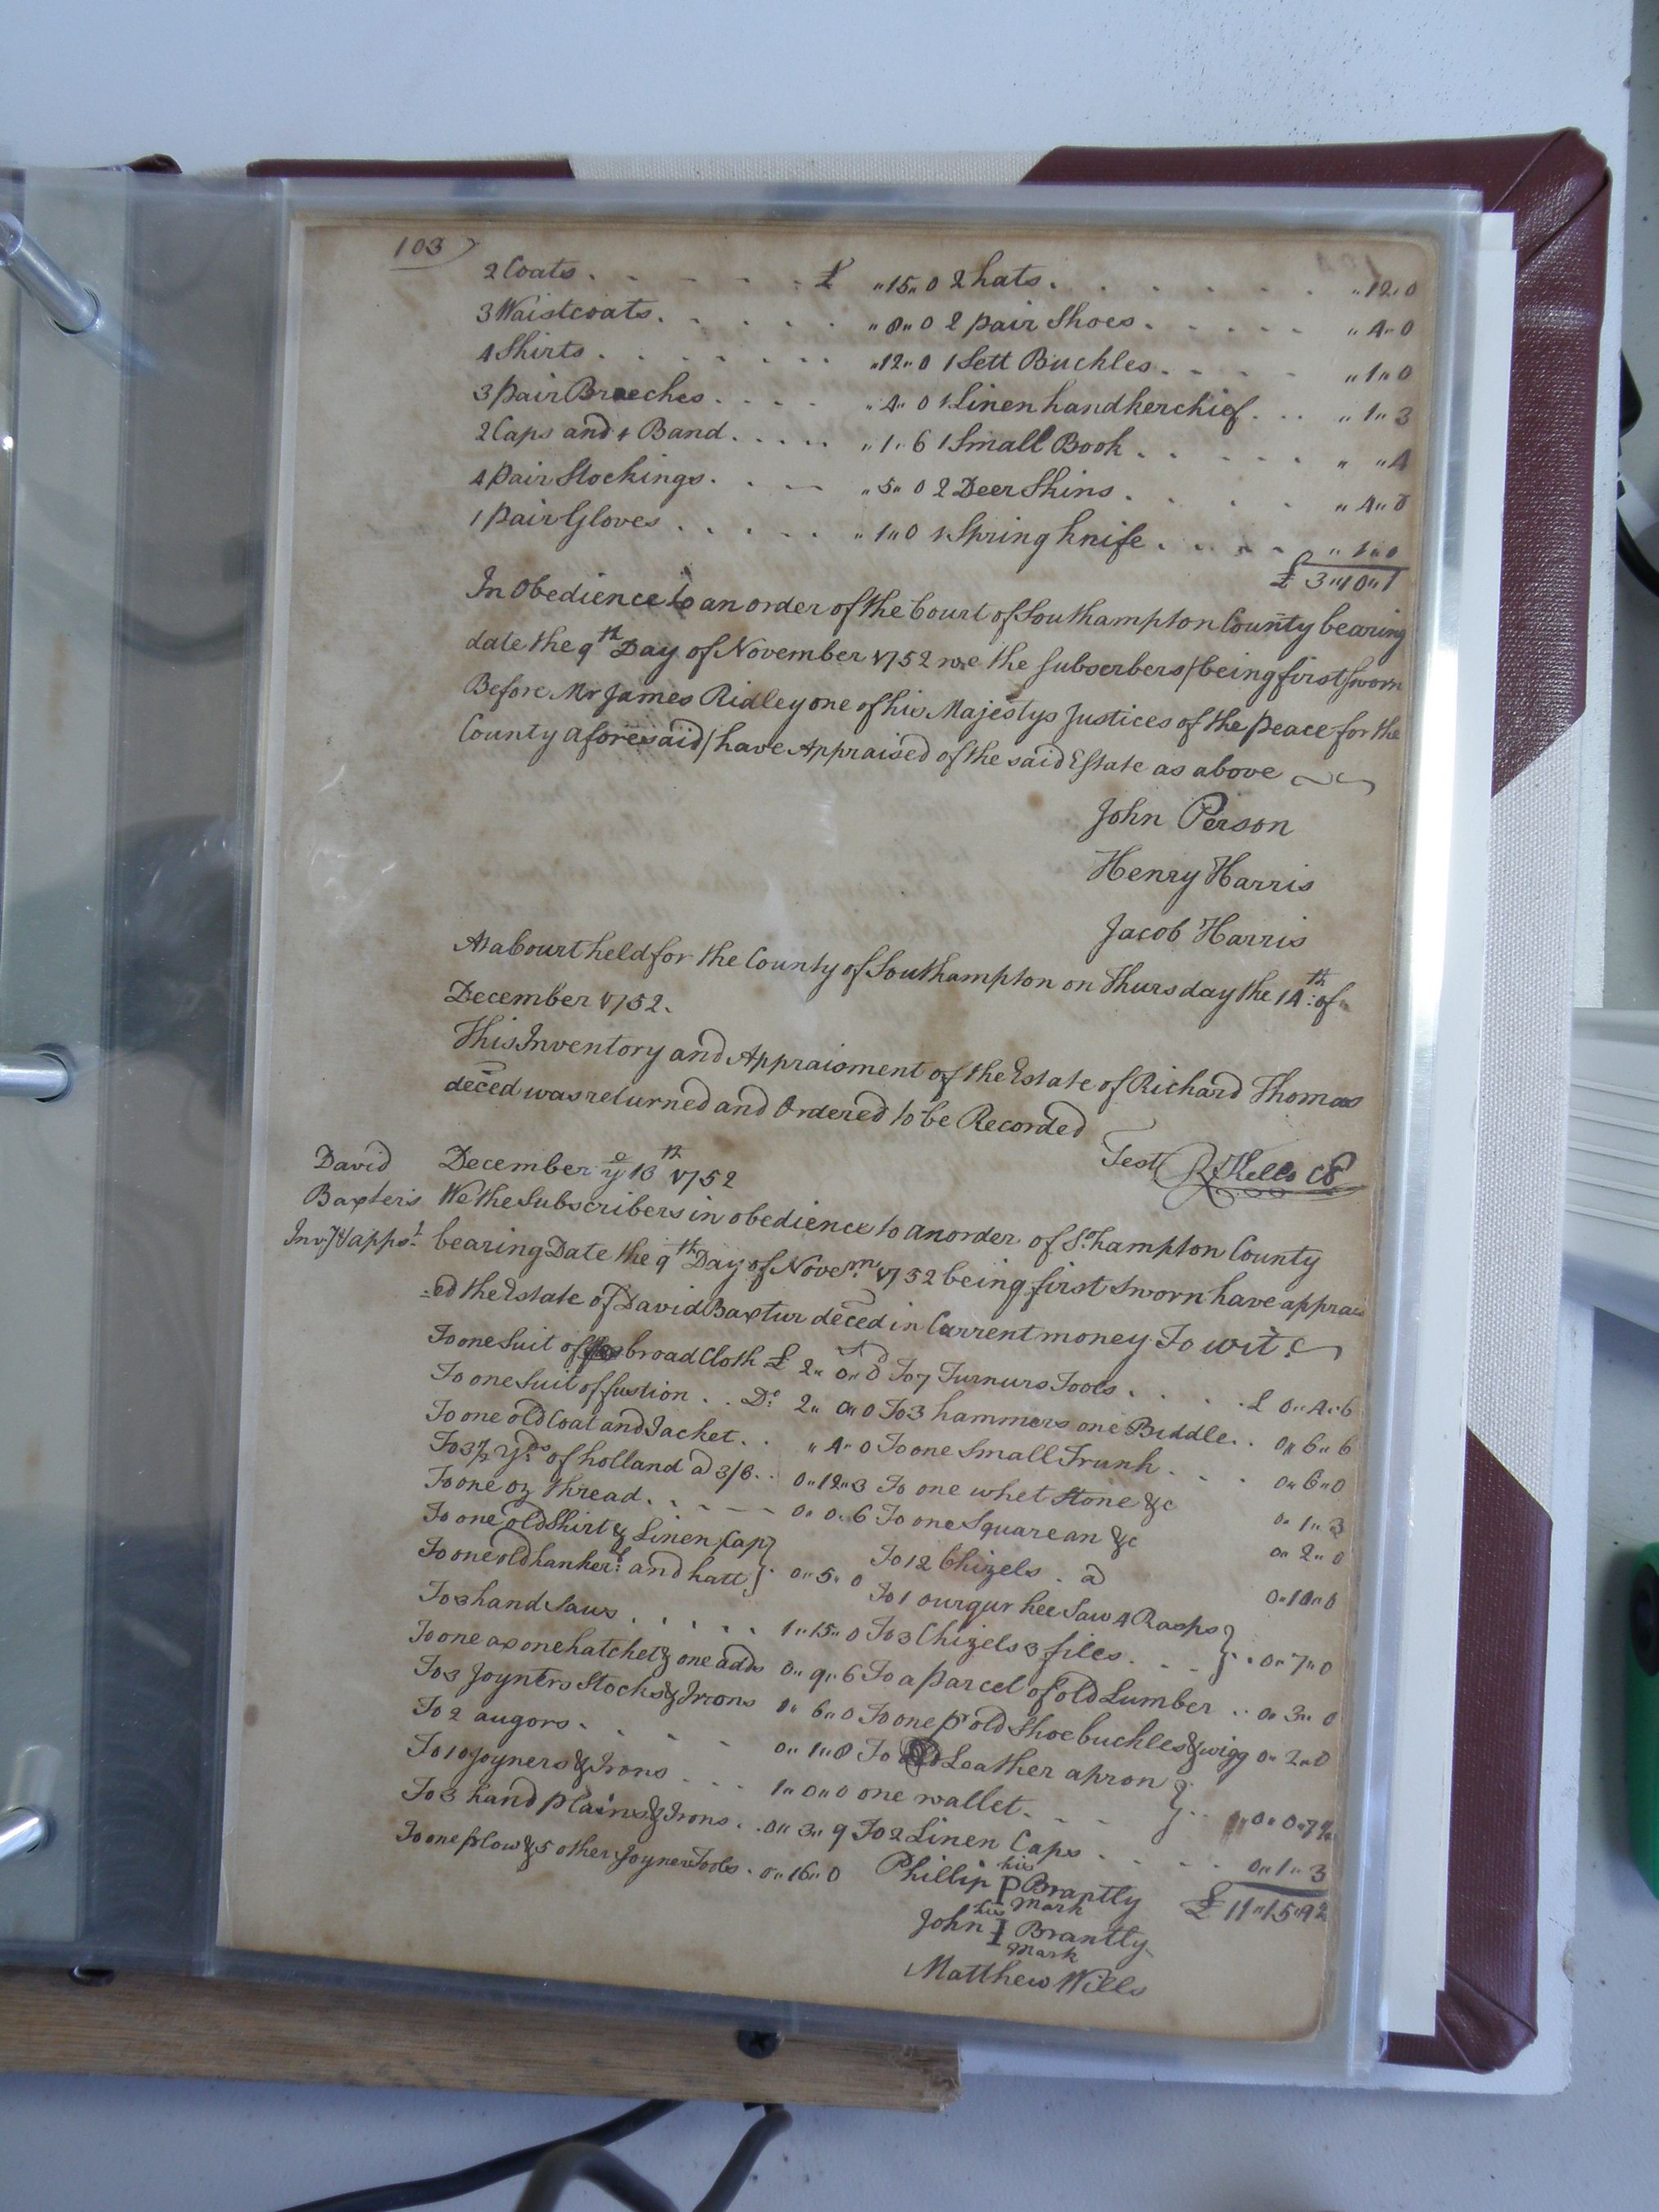 103
2 Coats . . . . . . £ "15" 0 2 hats . . . . . . . "12" 0
3 Waistcoats . . . . . "8" 0 2 pair Shoes . . . . . "4" 0
4 Shirts . . . . . . . "12" 0 1 Sett Buckles . . . . "1" 0
3 pair Breeches . . . . "4" 0 1 Linen handkerchief . . . "1" 3
2 Caps and 1 Band . . . . . "1" 6 1 Small Book . . . . . . " "4
4 pair Stockings . . . "5" 0 2 Deer Skins . . . . . "4" 0
1 pair Gloves . . . . . "1" 0 1 Spring knife . . . . "1" 0
£ 3"10"1
In Obedience to an order of the Court of Southampton County bearing
date the 9th Day of November 1752 we the subscrbers/being first sworn
Before Mr James Ridley one of his Majestys Justices of the peace for the
County aforesaid/have Appraised of the said Estate as above
John Person
Henry Harris
Jacob Harris
At a Court held for the County of Southampton on Thursday the 14th: of
December 1752.
This Inventory and Appraisment of the Estate of Richard Thomas
deced was returned and Ordered to be Recorded
Test R Kello CC
David
Baxter's
Inv:y & apps.t
December ye 13th 1752
We the Subscribers in obedience to an order of So.hampton County
bearing Date the 9th Day of Novem: 1752 being first Sworn have apprais
=ed the Estate of David Baxtur deced in Current money To wit:
To one Suit of broad Cloth £ 2" 0" 0 To 7 Turnurs Tools . . . . £ 0" 4" 6
To one Suit of fustion . . Do: 2" 0" 0 To 3 hammers one Biddle . . 0" 6" 6
To one old Coat and Jacket . . " 4" 0 To one Small Trunk . . . . 0" 6" 0
To 3 1/2 yds of holland a 3/6 . . 0" 12" 3 To one whet Stone &c 0" 1" 3
To one oz thread . . . . . 0" 0" 6 To one Square an &c 0" 2" 0
To one old Shirt & Linen Cap} To 12 Chizels . a 0" 10" 0
To one old hanker:f and hatt} . 0" 5" 0 To 1 ourgur kee Saw 4 Rasps}
To 3 hand Saws . . . . . 1" 15" 0 To 3 Chizels 3 files . . . } . . 0" 7" 0
To one ax one hatchet & one adds 0" 9" 6 To a parcel of old Lumber . . 0" 3" 0
To 3 Joynters Stocks & Irons 0" 6" 0 To one pr old Shoe buckles & wigg 0" 2" 0
To 2 augors . . . . 0" 1" 8 To Leather apron }
To 10 Joyners & Irons . . . 1" 0" 0 one wallet . . . } . . 0" 0" 7 1/2
To 3 hand plains & Irons . . 0" 3" 9 To 2 Linen Caps . . . . . 0" 1" 3
To one plow & 5 other Joyner Tools . 0" 16" 0
£ 11"15"9 1/2
Phillip his P mark Brantly
John his I mark Brantly
Matthew Wills